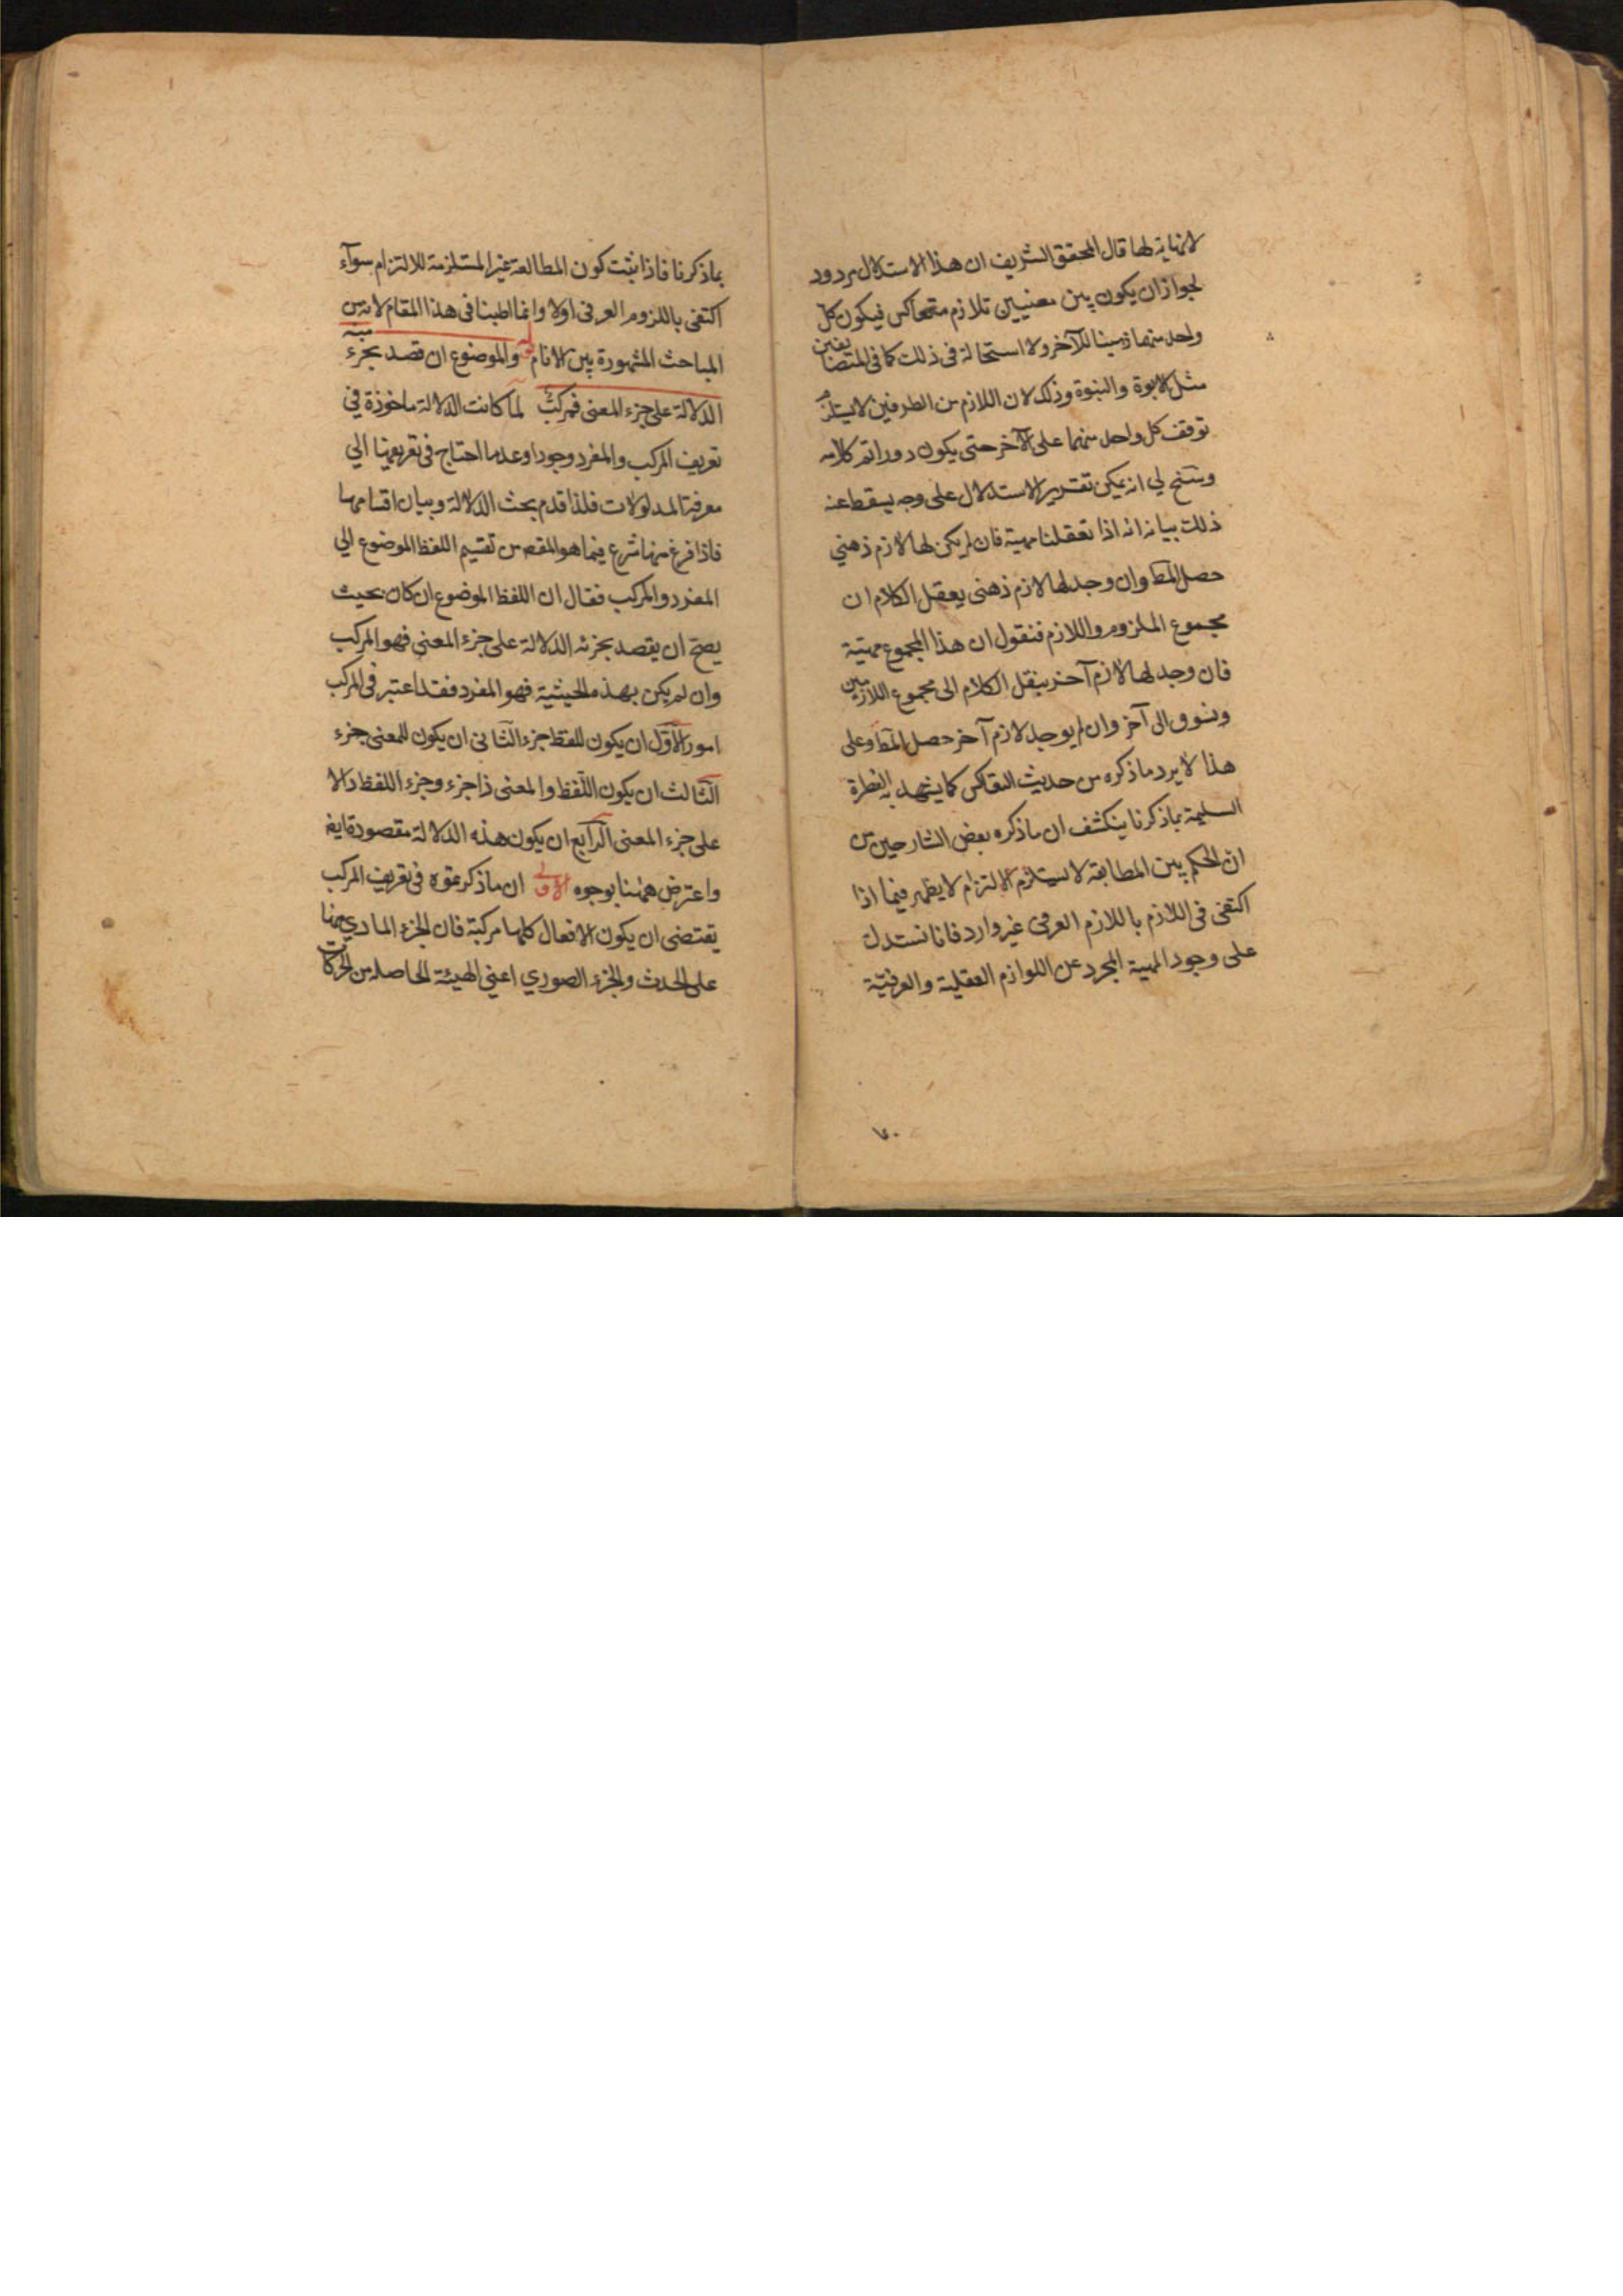 لانهاية لها قال المحقق الشريف ان هذا الاستدلال مردود
لجواز ان يكون بين معنيين تلازم متعاكس فيكون كل
واحد منهما ذهنيا للآخر ولا استحالة فى ذلك كما فى المتضايفين
مثل الابوة والبنوة وذلك لان اللازم من الطرفين لا يستلزم
توقف كل واحد منهما على الآخر حتى يكون دورا تم كلامه
وسنح لي انه يمكن تقرير الاستدلال على وجه يسقط عنه
ذلك بيانه انه اذا تعقلنا مهية فان لم يكن لها لازم ذهني
حصل المط وان وجد لها لازم ذهنى الكلام ان
مجموع الملزوم واللازم فنقول ان هذا المجموع مهية
فان وجد لها لازم آخر ينقل الكلام الى مجموع اللازمين
ونسوق الى آخر وان لم يوجد لازم آخر حصل المط وعلى
هذا لا يرد ما ذكره من حديث التعاكس كما يشهد به الفطرة
السليمة بما ذكرنا ينكشف ان ما ذكره بعض الشارحين من
انّ الحكم بين المطابقة لا يستلزم الالتزام لا يظهر فيما اذا
اكتفى فى اللازم باللازم العرفى غير وارد فانا نستدل
على وجود المهية المجرد عن اللوازم العقلية والعرفيّة
٧٠
بما ذكرنا فاذا ثبت كون المطابقة غير المستلزمة للالتزام سوآء
اكتفى باللزوم العرفى اولا وانما اطبنا فى هذا المقام لانه من
المباحث المشهورة بين الانام قوله والموضوع ان قصد بجزء منه
الدلالة على جزء المعنى فمركبٌ لمّا كانت الدلالة ماخوذة في
تعريف المركب والمفرد وجودا وعدما احتاج فى تعريفهما الي
معرفة المدلولات فلذا قدم بحث الدلالة وبيان اقسامها
فاذا فرغ منها شرع فيما هو المقصم من تقسيم اللفظ الموضوع الي
المفرد والمركب فقال ان اللفظ الموضوع ان كان بحيث
يصح ان يقصد بجزئه الدلالة على جزء المعنى فهو المركب
وان لم يكن بهذه الحيثية فهو المفرد فقد اعتبر فى المركب
امور الاوّل ان يكون للفظ جزء الثانى ان يكون للمعنى جزء
الثالث ان يكون اللفظ والمعنى ذا جزء وجزء اللفظ دالا
على جزء المعنى الرابع ان يكون هذه الدلالة مقصودة ايض
واعترض ههنا بوجوه الاول ان ما ذكرتموه فى تعريف المركب
يقتضى ان يكون الافعال كلها مركبة فان الجزء المادي منها
على الحدث والجزء الصوري اعني الهيئة الحاصله من الحركات